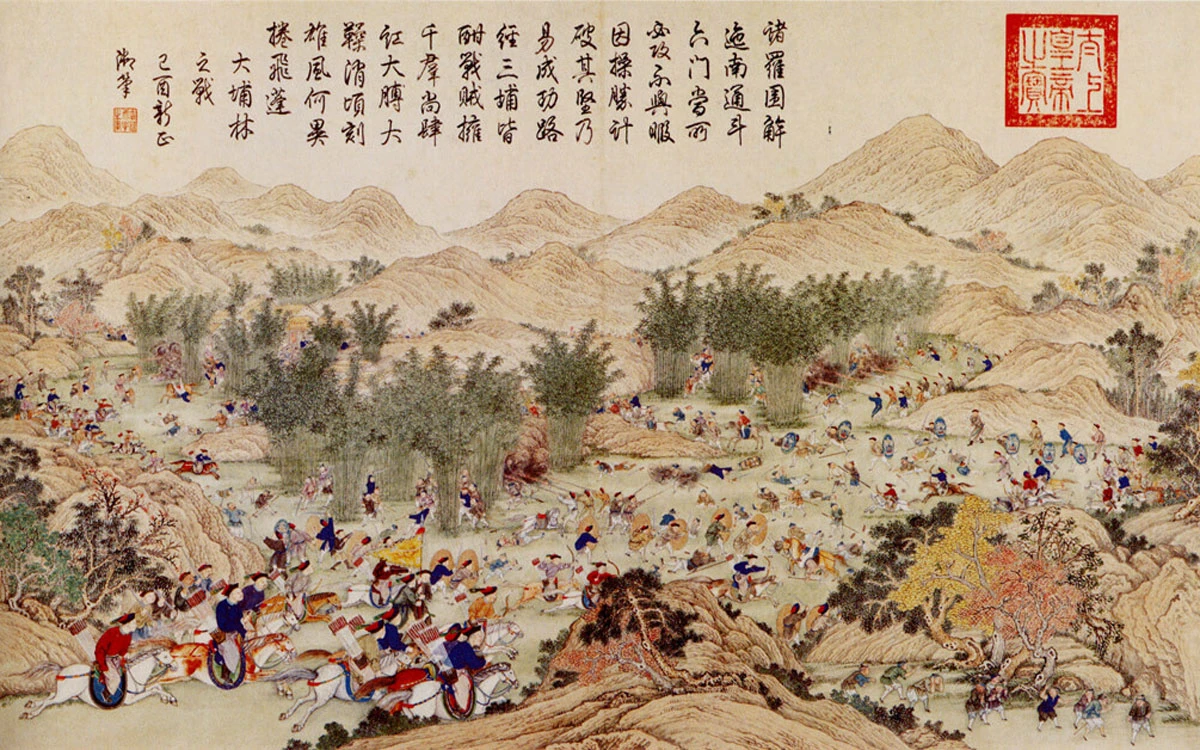 諸羅圍解
迤南通斗
六門當所
必攻不與暇
因操勝計
破其堅乃
易成功路
經三埔皆
酣戰賊擁
千羣尚肆
訌大膊大
消頃刻
雄風何異
捲飛蓬
大埔林
之戰
己酉新正
御筆
太上皇帝之寶